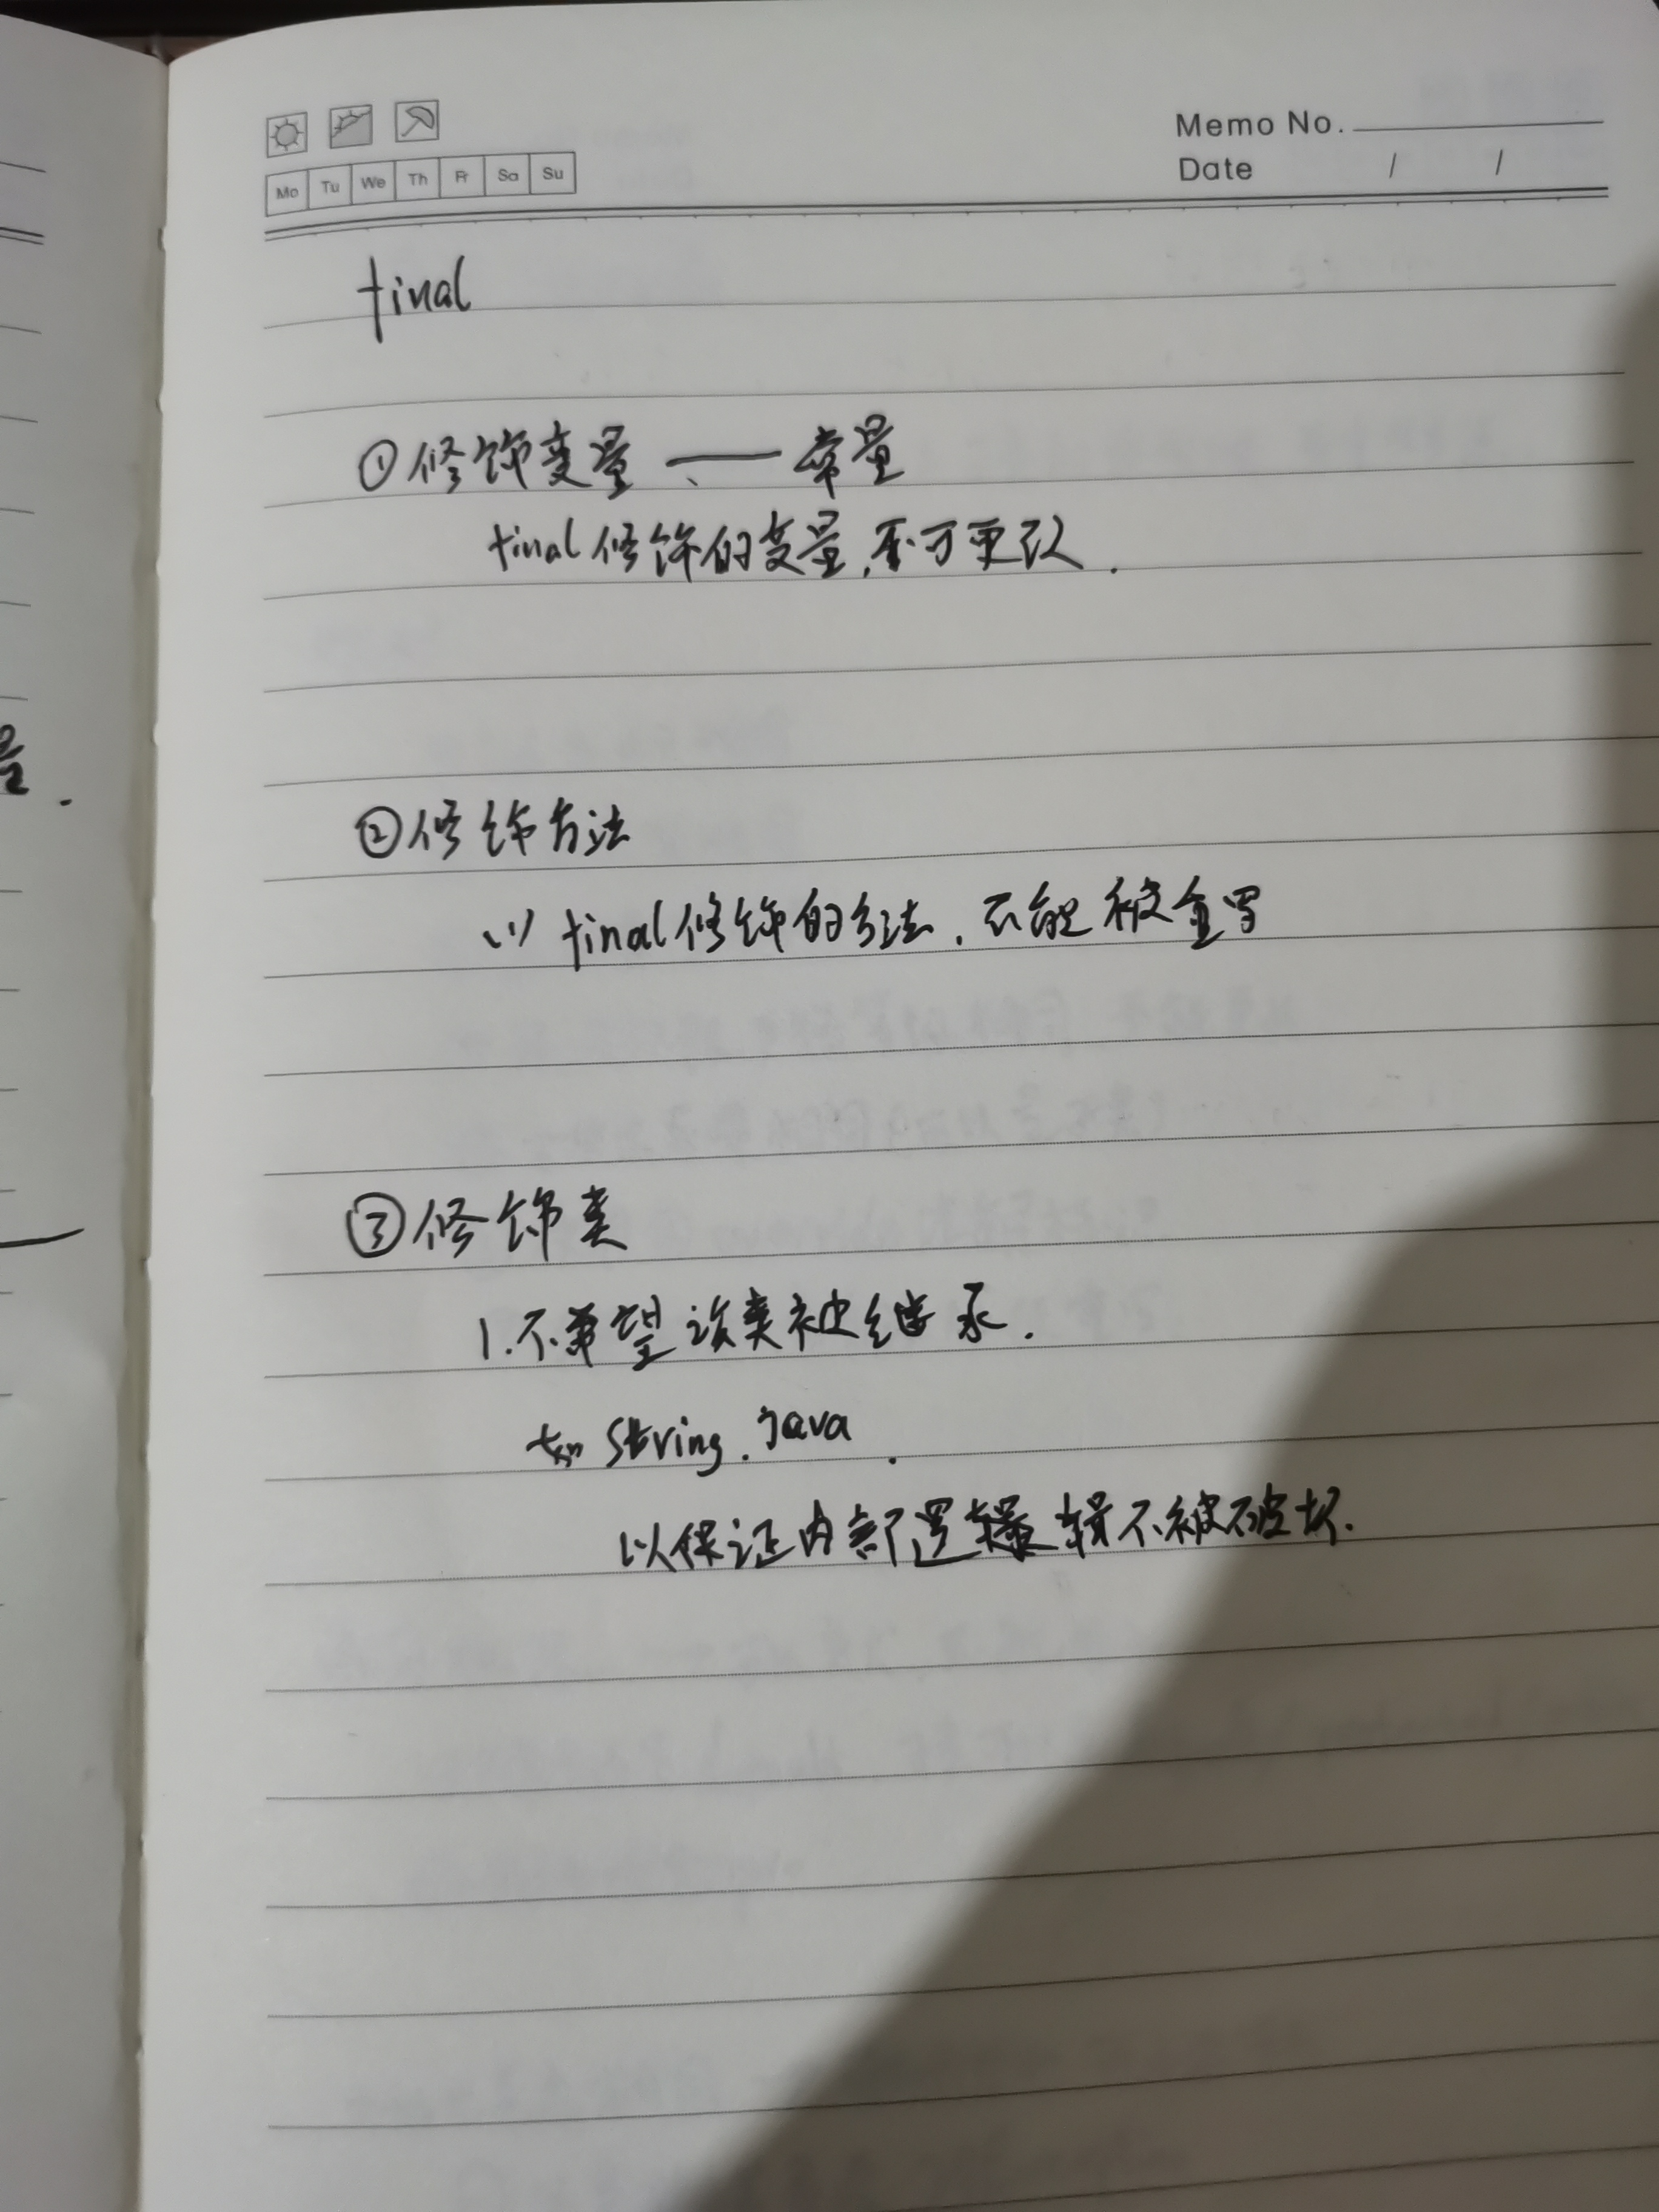 Memo No.
Date / /
Mo Tu We Th Fr Sa Su
final
①修饰变量、——常量
final修饰的变量,不可更改.
②修饰方法
(1) final修饰的方法,不能被重写
③修饰类
1.不希望该类被继承.
如 String.java.
以保证内部逻辑不被破坏.